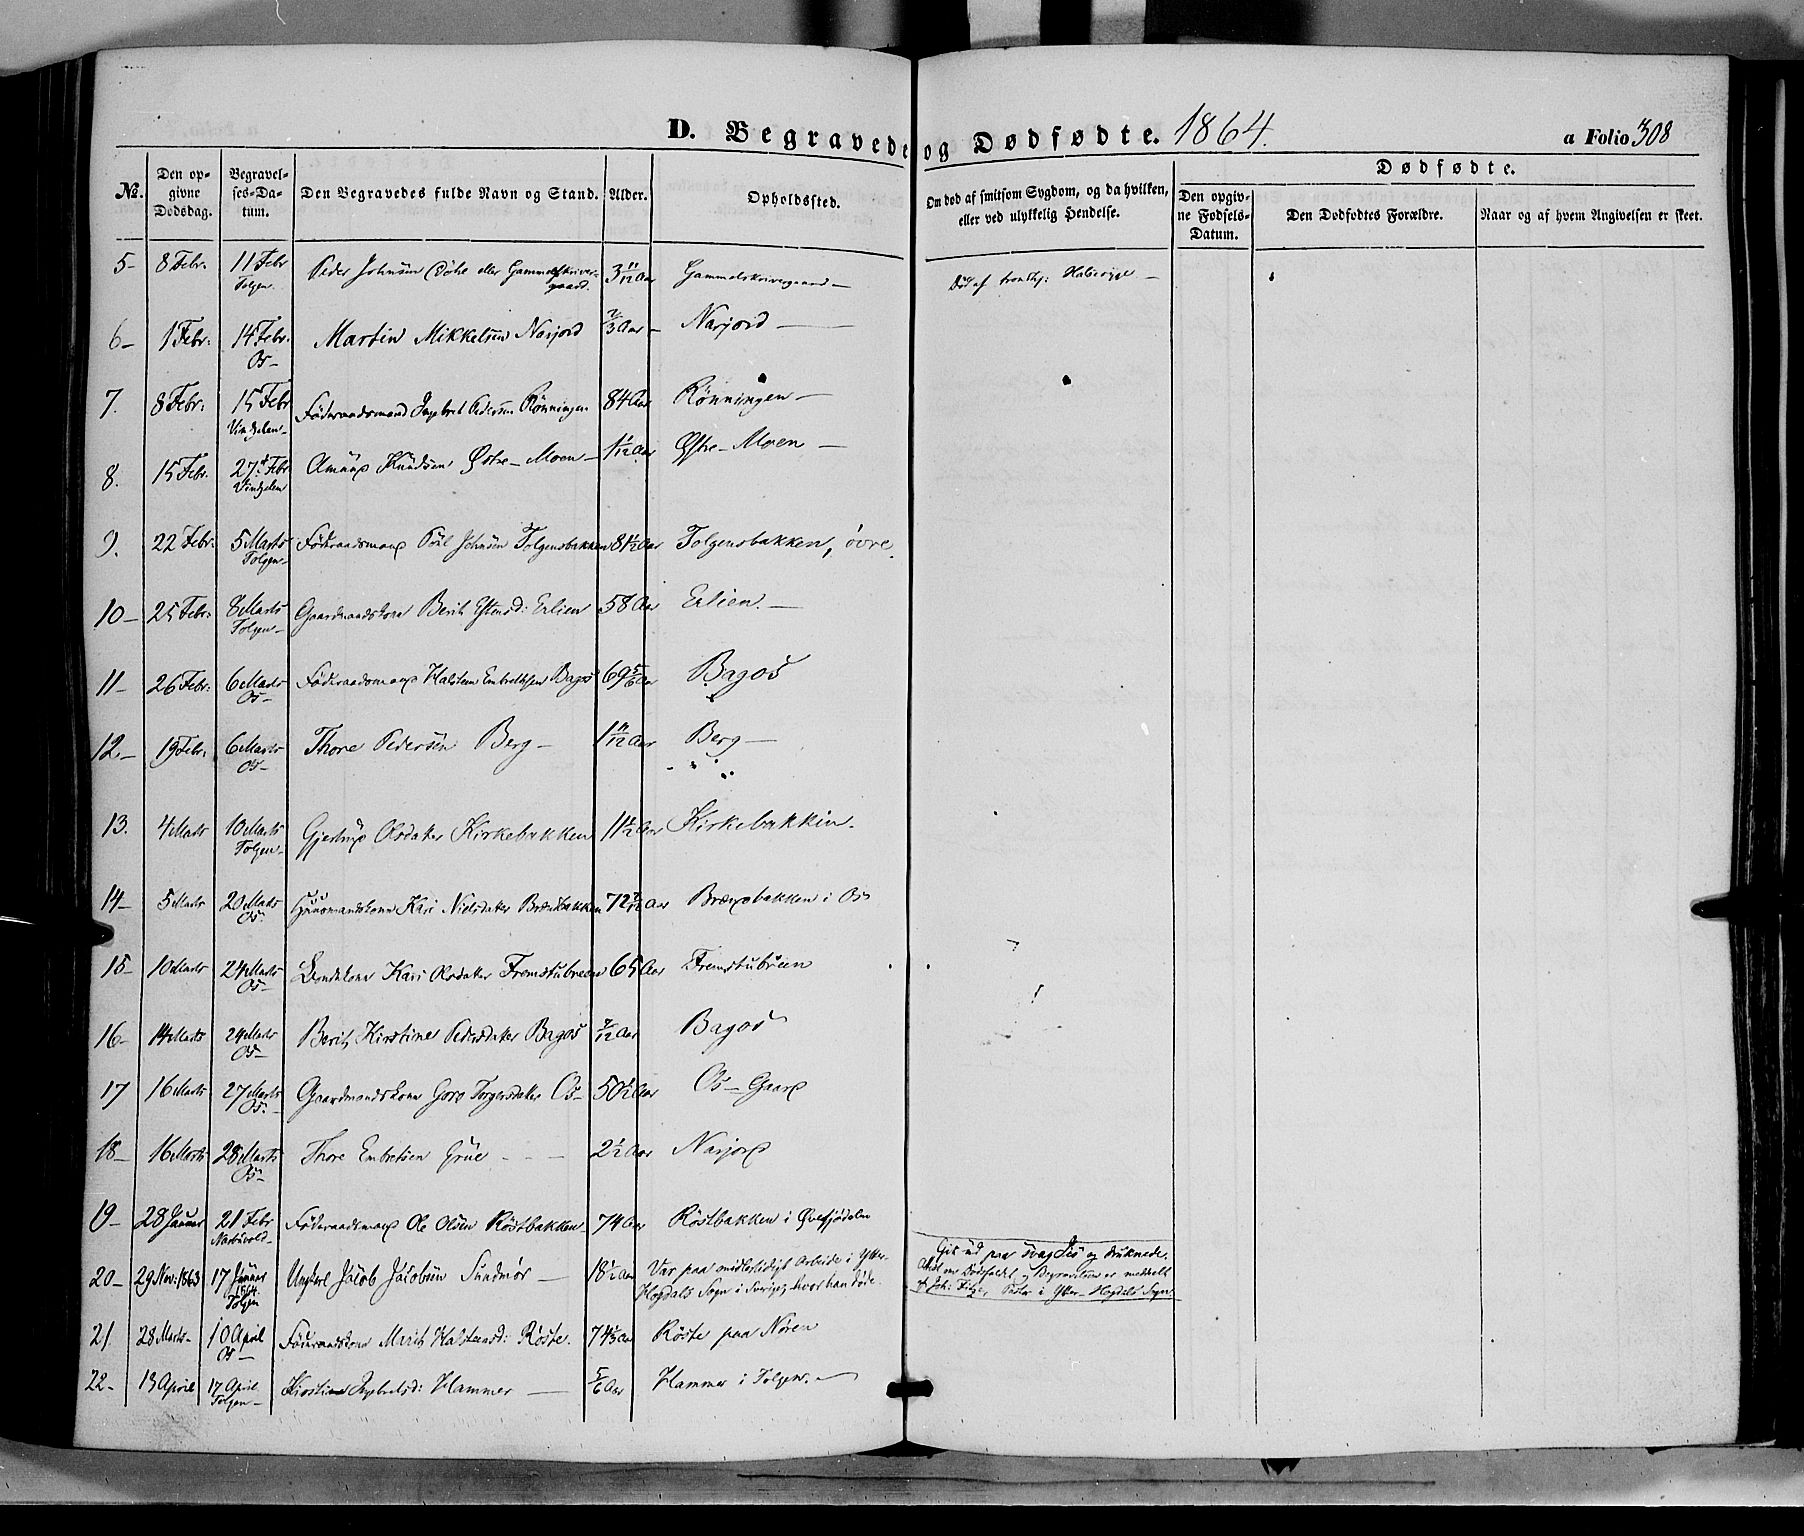 D. Begravede og Dødfødte. 1864.
a Folio 308
No.
Den opgivne Dødsdag.
Begravelses-Datum.
Den Begravedes fulde Navn og Stand.
Alder.
Opholdsted.
Om død af smitsom Sygdom, og da hvilken, eller ved ulykkelig Hendelse.
Dødfødte.
Den opgivne Fødsels-Datum.
Den Dødfødtes Forældre.
Naar og af hvem Angivelsen er skeet.
5- 8 Febr. 11 Febr Tolgen Peder Johnsen eller Gammelskrivergaard. 3 11/12 Aar Gammelskrivergaard - Død af
6- 1 Febr: 14 Febr. Os- Martin Mikkelsen Narjord 2/3 Aar - Narjord -
7. 8 Febr: 15 Febr Vingelen- Føderaadsmand Ingebret Pedersen Rønningen 84 Aar Rønningen -
8. 15 Febr. 27 Febr Vingelen Knudsen Østre-Moen - 1 1/12 Aar Østre-Moen -
9. 22 Febr: 5 Marts Tolgen- Føderaadsmand Pål Johnsen Tolgensbakken 81 1/2 Aar Tolgensbakken, øvre.
10- 25 Febr: 8 Marts Tolgen- Gaardmandskone Berit Estensd: Erlien 58 Aar Erlien. -
11- 26 Febr: 6 Marts Os- Føderaadsmand Halsten Embretsen Bagos 69 5/6 Aar Bagos
12- 19 Febr: 6 Marts Os- Thore Pedersen Berg - 1 11/12 Aar Berg -
13. 4 Marts 10 Marts Tolgen- Gjertrud Olsdater Kirkebakken 11 1/2 Aar Kirkebakken.
14- 5 Marts 20 Marts Os. Huusmandskone Kari Nielsdater Brændbakken 72 Aar Brændbakken i Os
15- 10 Marts 24 Marts Os- Kari Olsdater Fremstubreen 65 Aar Fremstubreen
16- 14 Marts 24 Marts Os- Berit Kirstine Pedersdater Bagos 9/12 Aar Bagos
17 16 Marts 27 Marts Os- Gaardmandskone Goro Torgersdater Os- 50 1/2 Aar Os-Gaard
18- 16 Marts 28 Marts Os- Thore Embretsen Grue - - - 2 1/2 Aar Narjord
19- 28 Januar 21 Febr Narbuvold- Føderaadsmand Ole Olsen Røstbakken 74 Aar Røstbakken i Øversjødalen
20- 29 Nov: 1863 17 Januar 1864. Tolgen Ungkarl Jacob Jacobsen Sundmør - 18 1/2 Aar Var paa midlertidigt Arbeide i Ytter-
Hogdals Sogn i Sverige, hvor han døde.
Gik ud paa svag Iis og druknede.
Attest om Dødsfaldet og Begravelsen er meddelt
af Pastor i Ytter-Hogdals Sogn
21. 28 Marts- 10 April Os- Føderaadskone Marit Halstensd: Røste. 74 Aar Røste paa Nøren
22- 13 April 17 April Tolgen- Kirstine Ingebretsd: Hammer - 5/6 Aar Hammer i Tolgen. -